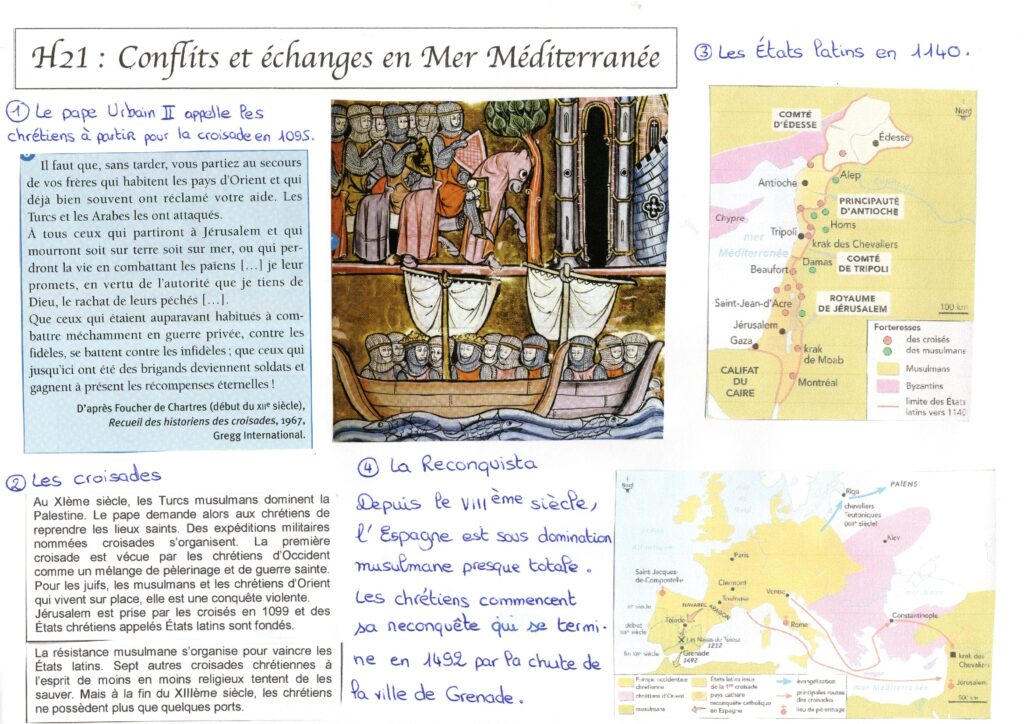 H21 : Conflits et échanges en Mer Méditerranée
① Le pape Urbain II appelle les
chrétiens à partir pour la croisade en 1095.
Il faut que, sans tarder, vous partiez au secours
de vos frères qui habitent les pays d'Orient et qui
déjà bien souvent ont réclamé votre aide. Les
Turcs et les Arabes les ont attaqués.
À tous ceux qui partiront à Jérusalem et qui
mourront soit sur terre soit sur mer, ou qui per-
dront la vie en combattant les païens [...] je leur
promets, en vertu de l'autorité que je tiens de
Dieu, le rachat de leurs péchés [...].
Que ceux qui étaient auparavant habitués à com-
battre méchamment en guerre privée, contre les
fidèles, se battent contre les infidèles ; que ceux qui
jusqu'ici ont été des brigands deviennent soldats et
gagnent à présent les récompenses éternelles !
D'après Foucher de Chartres (début du XIIe siècle),
Recueil des historiens des croisades, 1967,
Gregg International.
③ Les États latins en 1140.
Nord
COMTÉ
D'ÉDESSE
Édesse
Antioche
Alep
PRINCIPAUTÉ
D'ANTIOCHE
Chypre
Homs
Tripoli
krak des Chevaliers
mer
Méditerranée
Damas
COMTÉ
DE TRIPOLI
Beaufort
Saint-Jean-d'Acre
ROYAUME
DE JÉRUSALEM
100 km
Jérusalem
Gaza
krak
de Moab
CALIFAT
DU
CAIRE
Montréal
Forteresses
des croisés
des musulmans
Musulmans
Byzantins
limite des États
latins vers 1140
② Les croisades
Au XIème siècle, les Turcs musulmans dominent la
Palestine. Le pape demande alors aux chrétiens de
reprendre les lieux saints. Des expéditions militaires
nommées croisades s'organisent. La première
croisade est vécue par les chrétiens d'Occident
comme un mélange de pèlerinage et de guerre sainte.
Pour les juifs, les musulmans et les chrétiens d'Orient
qui vivent sur place, elle est une conquête violente.
Jérusalem est prise par les croisés en 1099 et des
États chrétiens appelés États latins sont fondés.
La résistance musulmane s'organise pour vaincre les
États latins. Sept autres croisades chrétiennes à
l'esprit de moins en moins religieux tentent de les
sauver. Mais à la fin du XIIIème siècle, les chrétiens
ne possèdent plus que quelques ports.
④ La Reconquista
Depuis le VIIIème siècle,
l'Espagne est sous domination
musulmane presque totale.
Les chrétiens commencent
sa reconquête qui se termi-
ne en 1492 par la chute de
la ville de Grenade.
Nord
Riga
PAÏENS
chevaliers
Teutoniques
(XIIIe siècle)
Kiev
Paris
Saint-Jacques-
de-Compostelle
Clermont
Toulouse
Venise
NAVARRE
ARAGON
Rome
Constantinople
Tolède
Las Navas de Tolosa
1212
Grenade
1492
krak des
Chevaliers
Jérusalem
mer Méditerranée
500 km
Europe occidentale
chrétienne
chrétiens d'Orient
musulmans
États latins issus
de la 1re croisade
pays cathare
reconquête catholique
en Espagne
évangélisation
principales routes
des croisades
lieu de pèlerinage